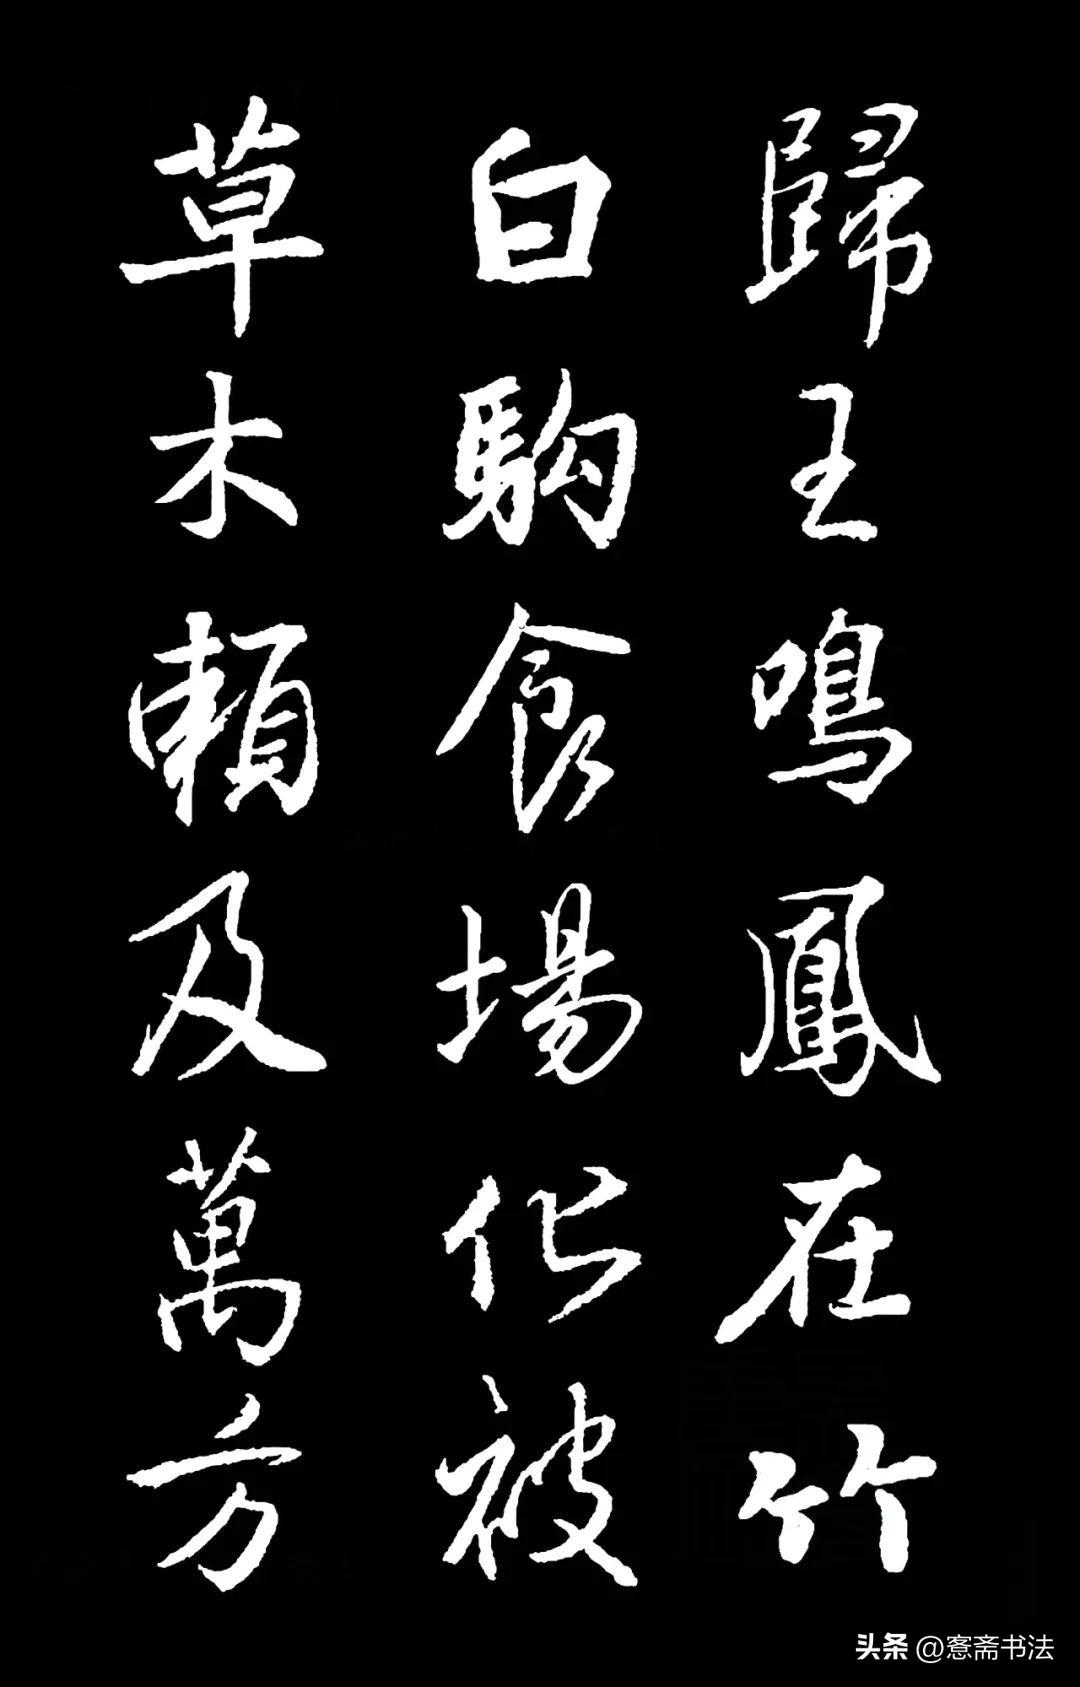 歸王鳴鳳在竹
白駒食場化被
草木賴及萬方
头条 @窸斋书法